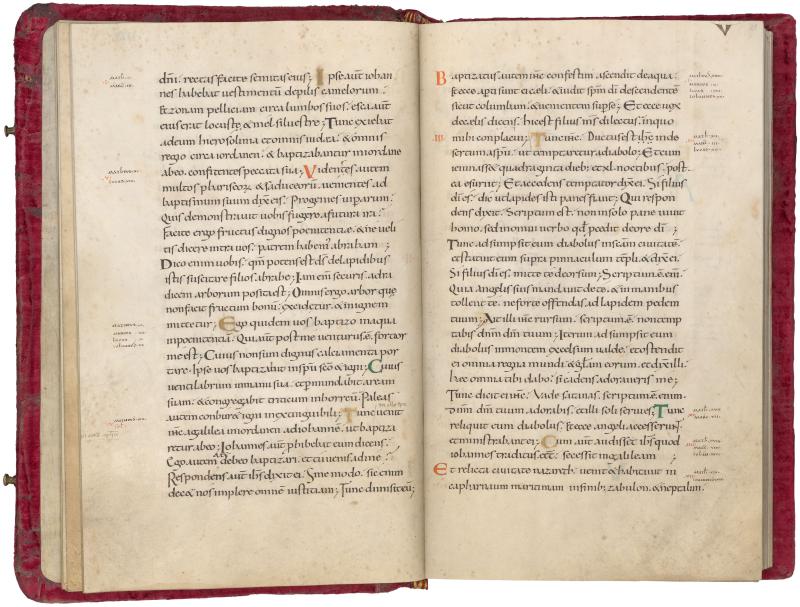 dñi. rectas facite semitas eius; Ipse aut iohan
nes habebat uestimentũ depilis camelorum.
& zonam pelliciam circa lumbos suos. esca aut
eius erat locuste & mel siluestre; Tunc exiebat
adeum hierosolima & omnis iudęa. & omnis
regio circa iordanen. & baptizabantur iniordane
abeo. confitentes peccata sua; Videns autem
multos phariseorũ. & sadduceorũ. uenientes ad
baptismum suum dixit eis. Progenies uiperarum.
Quis demonstrauit uobis fugere afutura ira.
Facite ergo fructus dignos poenitentiae. & ne ueli
tis dicere intra uos. patrem habem' abraham;
Dico enim uobis. qm̃ potens est ds delapidibus
istis suscitare filios abrahę; Iam em̃ securis adra
dicem arborum posita est; Omnis ergo arbor quę
non facit fructum bonũ. excidetur. & inignem
mittetur; Ego quidem uos baptizo inaqua
inpoenitentiã. Qui aut post me uenturus ẽ. fortior
me est; Cuius non sum dignus calciamenta por
tare. Ipse uos baptizabit inspũ scõ & igni; Cuius
uentilabrum inmanu sua. et p̃mundabit aream
suam. & congregabit triticum inhorreũ. Paleas
autem conburet igni inextinguibili; Tunc uenit
ihc̃ agalilea iniordanen adiohannẽ. ut baptiza
retur abeo; Iohannes aut p̃hibebat eum dicens.
Ego autem adte debeo baptizari. et tu uenis ad me.
Respondens aut ihs dixit ei. Sine modo. sic enim
decet nos implere omnẽ iustitiam; Tunc dimisit eũ;
V
Baptizatus autem ihc̃ confestim ascendit deaqua.
& ecce aperti sunt ei cæli. & uidit spm̃ dĩ descendente
sicut columbam. & uenientem sup̃ se; Et ecce uox
decælis dicens. hic est filius ms dilectus. inquo
mihi conplacui; Tunc ihc̃. Ductus est ihc̃ inde
sertum aspũ. ut temptaretur adiabolo; Et cum
ieiunasset quadraginta dieb; et xl noctibus. post
ea esurit; Et accedens temptator dixit ei. Si filius
dĩ es. dic ut lapides isti panes fiant; Qui respon
dens dixit. Scriptum est. non insolo pane uiuit
homo. sed inomni uerbo qd pcedit deore dĩ;
Tunc adsumpsit eum diabolus inscam̃ ciuitatẽ.
et statuit eum supra pinnaculum tẽpli. & dixit ei.
Si filius dĩ es. mitte te deorsum; Scriptum ẽ em̃.
Quia angelis suis mandauit dete. & inmanibus
tollent te. ne forte offendas ad lapidem pedem
tuum; Ait illi ihc̃ rursum. scriptum ẽ. non temp
tabis dnm̃ dm̃ tuum; Iterum adsumpsit eum
diabolus inmontem excelsum ualde. et ostendit
ei omnia regna mundi & glam̃ eorum. et dixit illi.
hæc omnia tibi dabo. si cadens adoraueris me;
Tunc dicit ei ihc̃. Vade satanas. scriptum ẽ enim.
dnm̃ dm̃ tuum adorabis. et illi soli seruies; Tunc
reliquit eum diabolus. & ecce angeli accesserunt
et ministrabant ei; Cum aut audisset ihs quod
iohannes traditus esset. secessit ingalileam
Et relicta ciuitate nazareth. uenit & habitauit in
capharnaum maritimam infinib; zabulon. & neptalim.